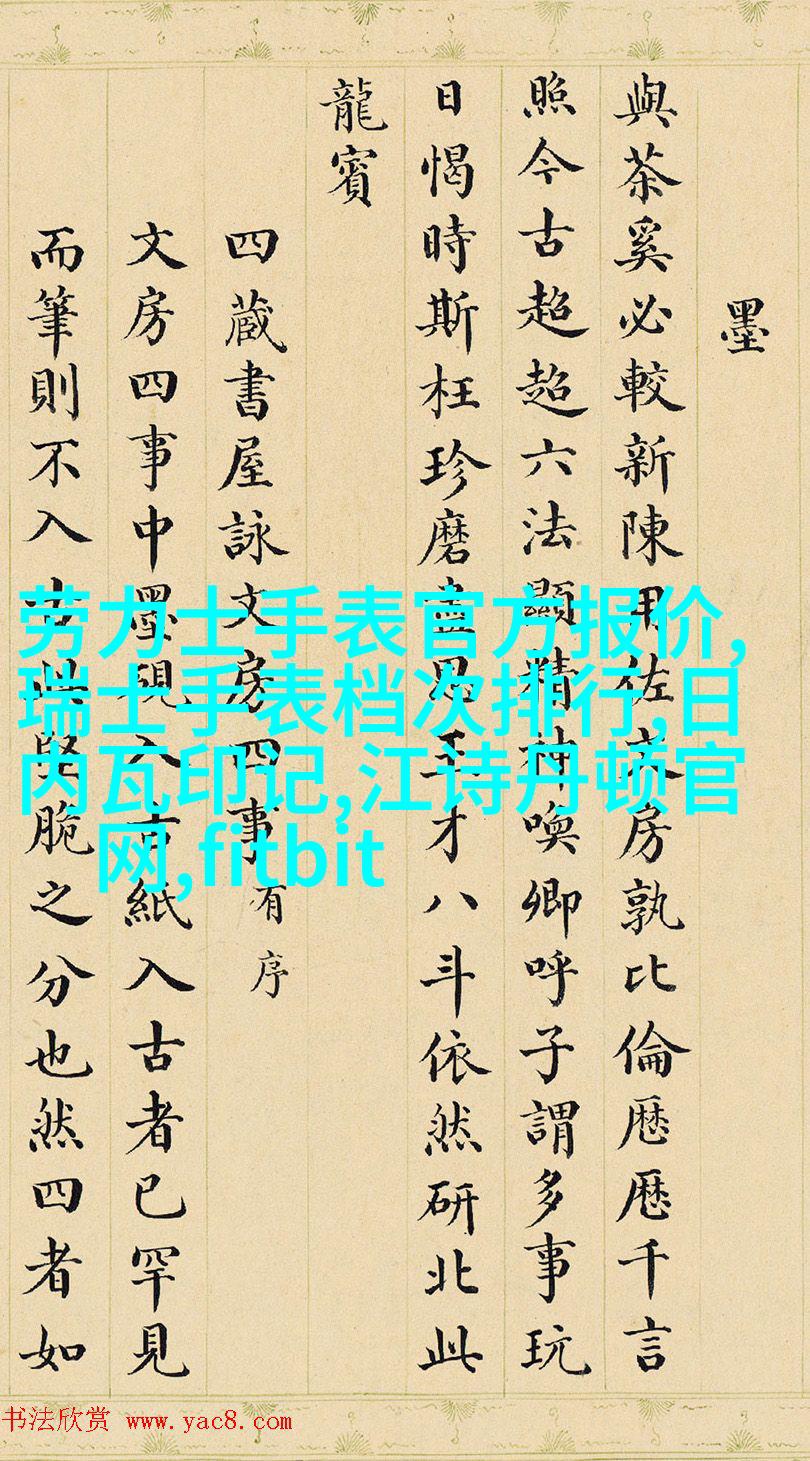 墨
與茶奚必較新陳用佐文房孰比倫歷歷千言
照今古超超六法顯精神喚卿呼子謂多事玩
日愒時斯枉珍磨盡思王才八斗依然研北此
龍賓
四藏書屋詠文房四事有序
文房四事中墨硯入古紙入古者已罕見
而筆則不入古與堅脆之分也然四者如
劳力士手表官方报价,
瑞士手表档次排行,日
内瓦印记,江诗丹顿官
网,fitbit
书法欣赏 www.yac8.com